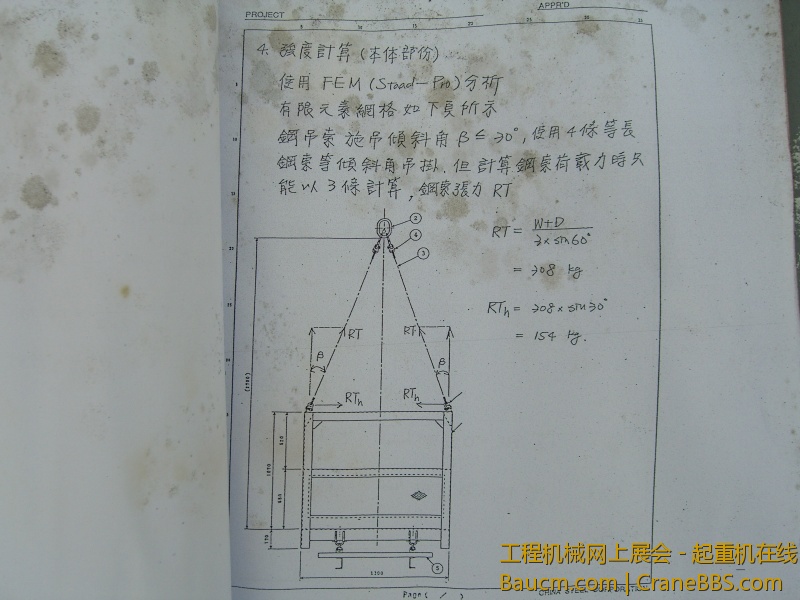 PROJECT
APPR'D
4. 強度計算(本体部份)
使用 FEM (Staad-Pro) 分析
有限元素網格如下頁所示
鋼吊索施吊傾斜角 β ≤ 30°, 使用4條等長
鋼索等傾斜角吊掛. 但計算鋼索荷載力時只
能以3條計算, 鋼索張力 RT
RT = W+D / 3×sin60°
= 308 kg
RTh = 308 × sin30°
= 154 kg.
2
4
3
RT
RT
β
β
RTh
RTh
5
Page( / )
CHINA STEEL CORPORATION
工程机械网上展会 - 起重机在线
Baucm.com | CraneBBS.com